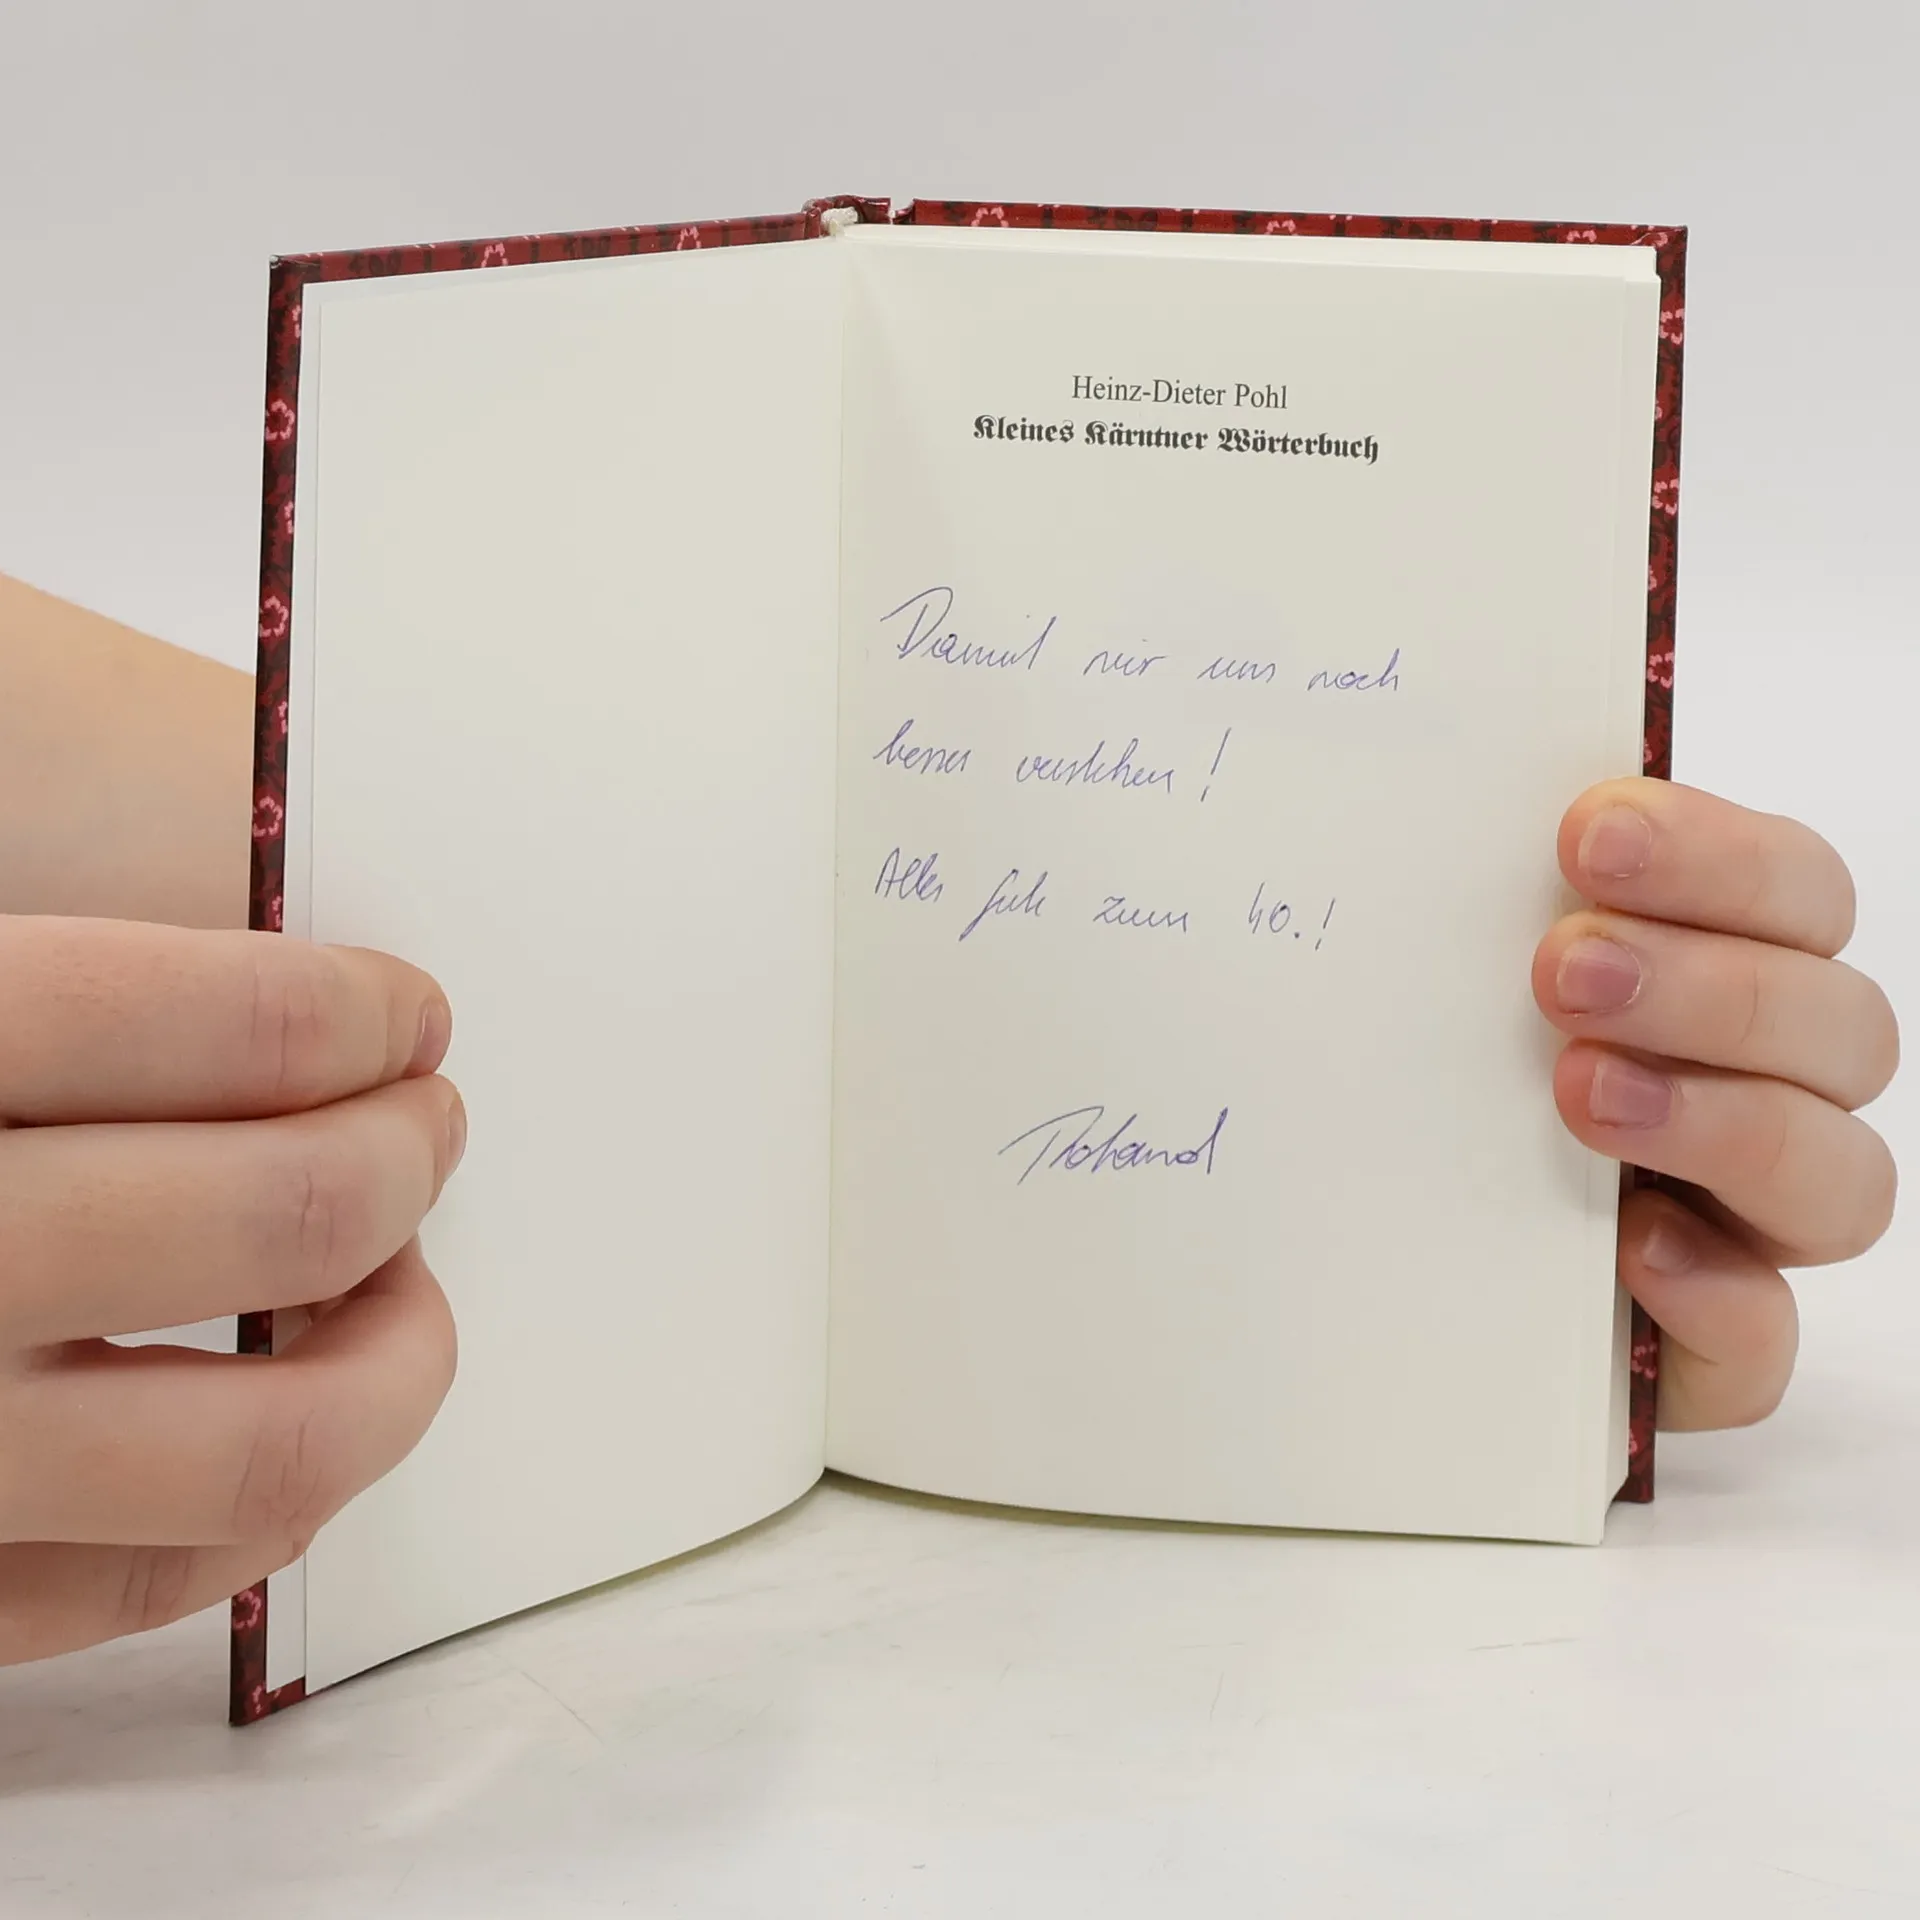 Heinz-Dieter Pohl
Kleines Kärntner Wörterbuch
Damit wir uns noch
besser verstehen!
Alles Gute zum 40.!
Roland